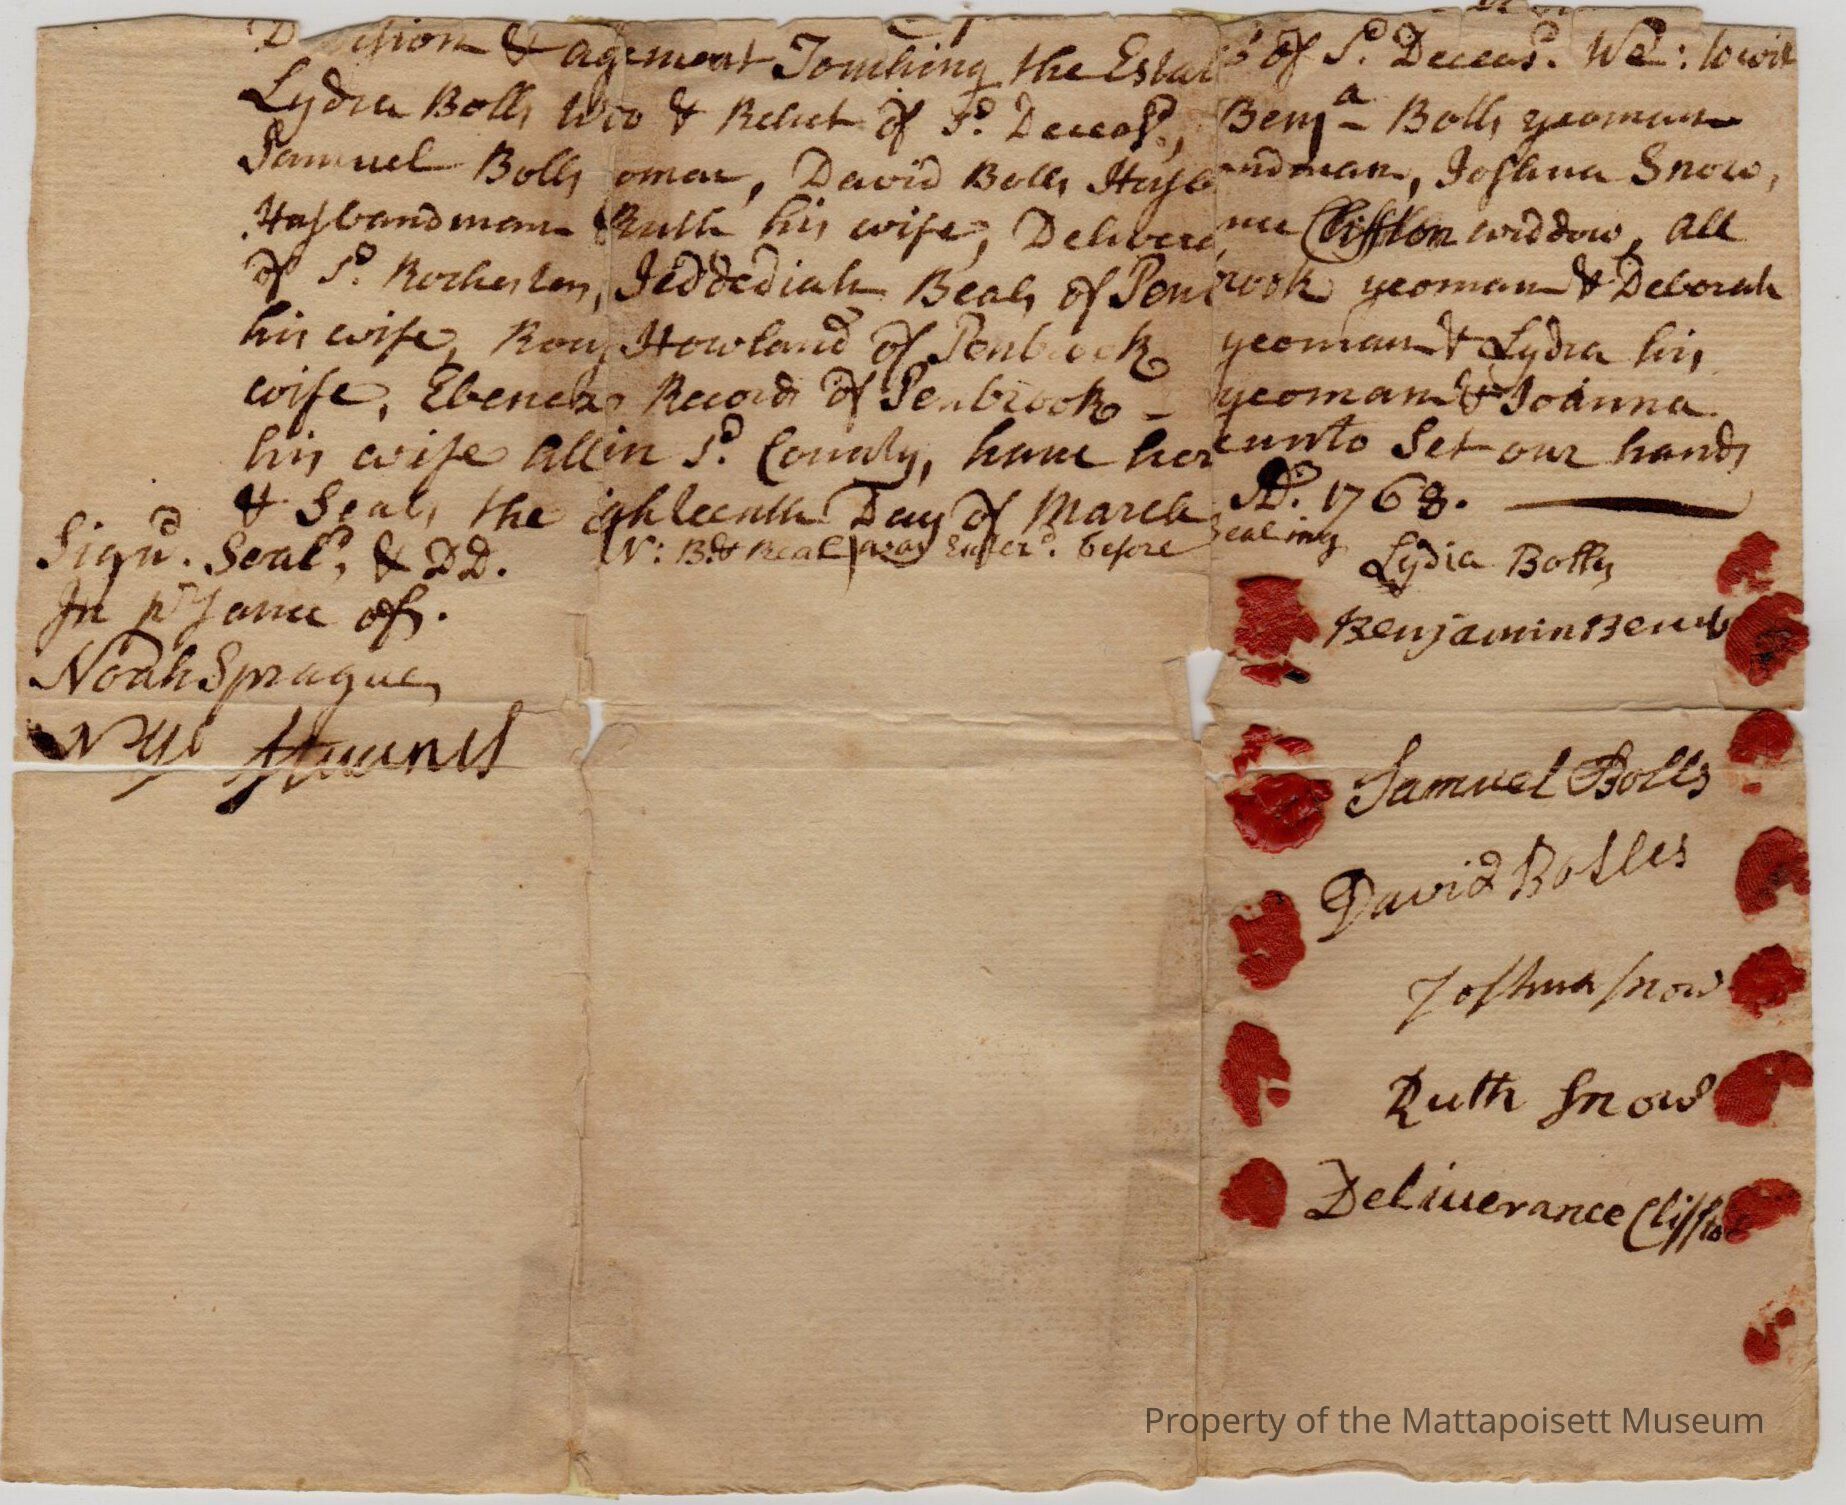 & agement Touching the Estat of Sd. Deceasd. We: towit
Lydia Bolls Wido & Relict of Sd. Deceasd, Benja Bolls yeoman
Samuel Bolls oman, David Bolls Husbandman, Joshua Snow,
Husbandman & Ruth his wife, Deliverance Cliffton widdow, all
of Sd. Rochester, Jeddediah Beals of Penbrook yeoman & Deborah
his wife, Rous Howland of Penbrook yeoman & Lydia his
wife, Ebenezr Record of Penbrook - yeoman & Joanna
his wife all in Sd. County, have hereunto Set our hands
& Seals the ighteenth Day of March AD. 1768.
N: B: & Real was Enterd. before Sealing
Signd. Seald, & DD.
In prsance of.
Noah Sprague
Lydia Bolls
Benjamin
Samuel Bolls
David Bolles
Joshua Snow
Ruth Snow
Deliverance Cliffton
Property of the Mattapoisett Museum